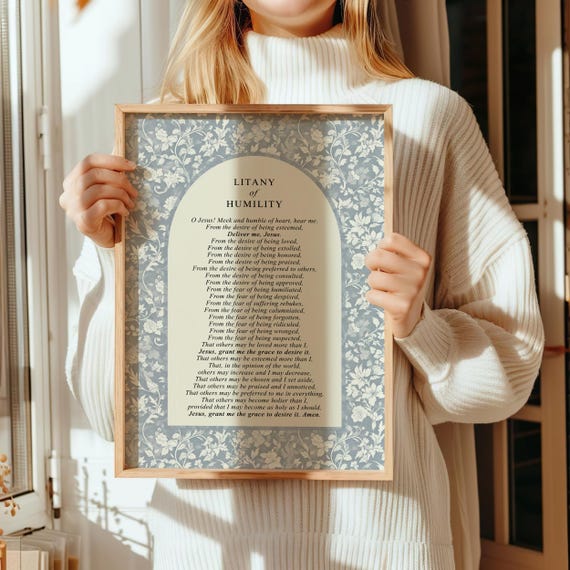 LITANY
of
HUMILITY
O Jesus! Meek and humble of heart, hear me.
From the desire of being esteemed,
Deliver me, Jesus.
From the desire of being loved,
From the desire of being extolled,
From the desire of being honored,
From the desire of being praised,
From the desire of being preferred to others,
From the desire of being consulted,
From the desire of being approved,
From the fear of being humiliated,
From the fear of being despised,
From the fear of suffering rebukes,
From the fear of being calumniated,
From the fear of being forgotten,
From the fear of being ridiculed,
From the fear of being wronged,
From the fear of being suspected,
That others may be loved more than I,
Jesus, grant me the grace to desire it.
That others may be esteemed more than I,
That, in the opinion of the world,
others may increase and I may decrease,
That others may be chosen and I set aside,
That others may be praised and I unnoticed,
That others may be preferred to me in everything,
That others may become holier than I,
provided that I may become as holy as I should,
Jesus, grant me the grace to desire it. Amen.